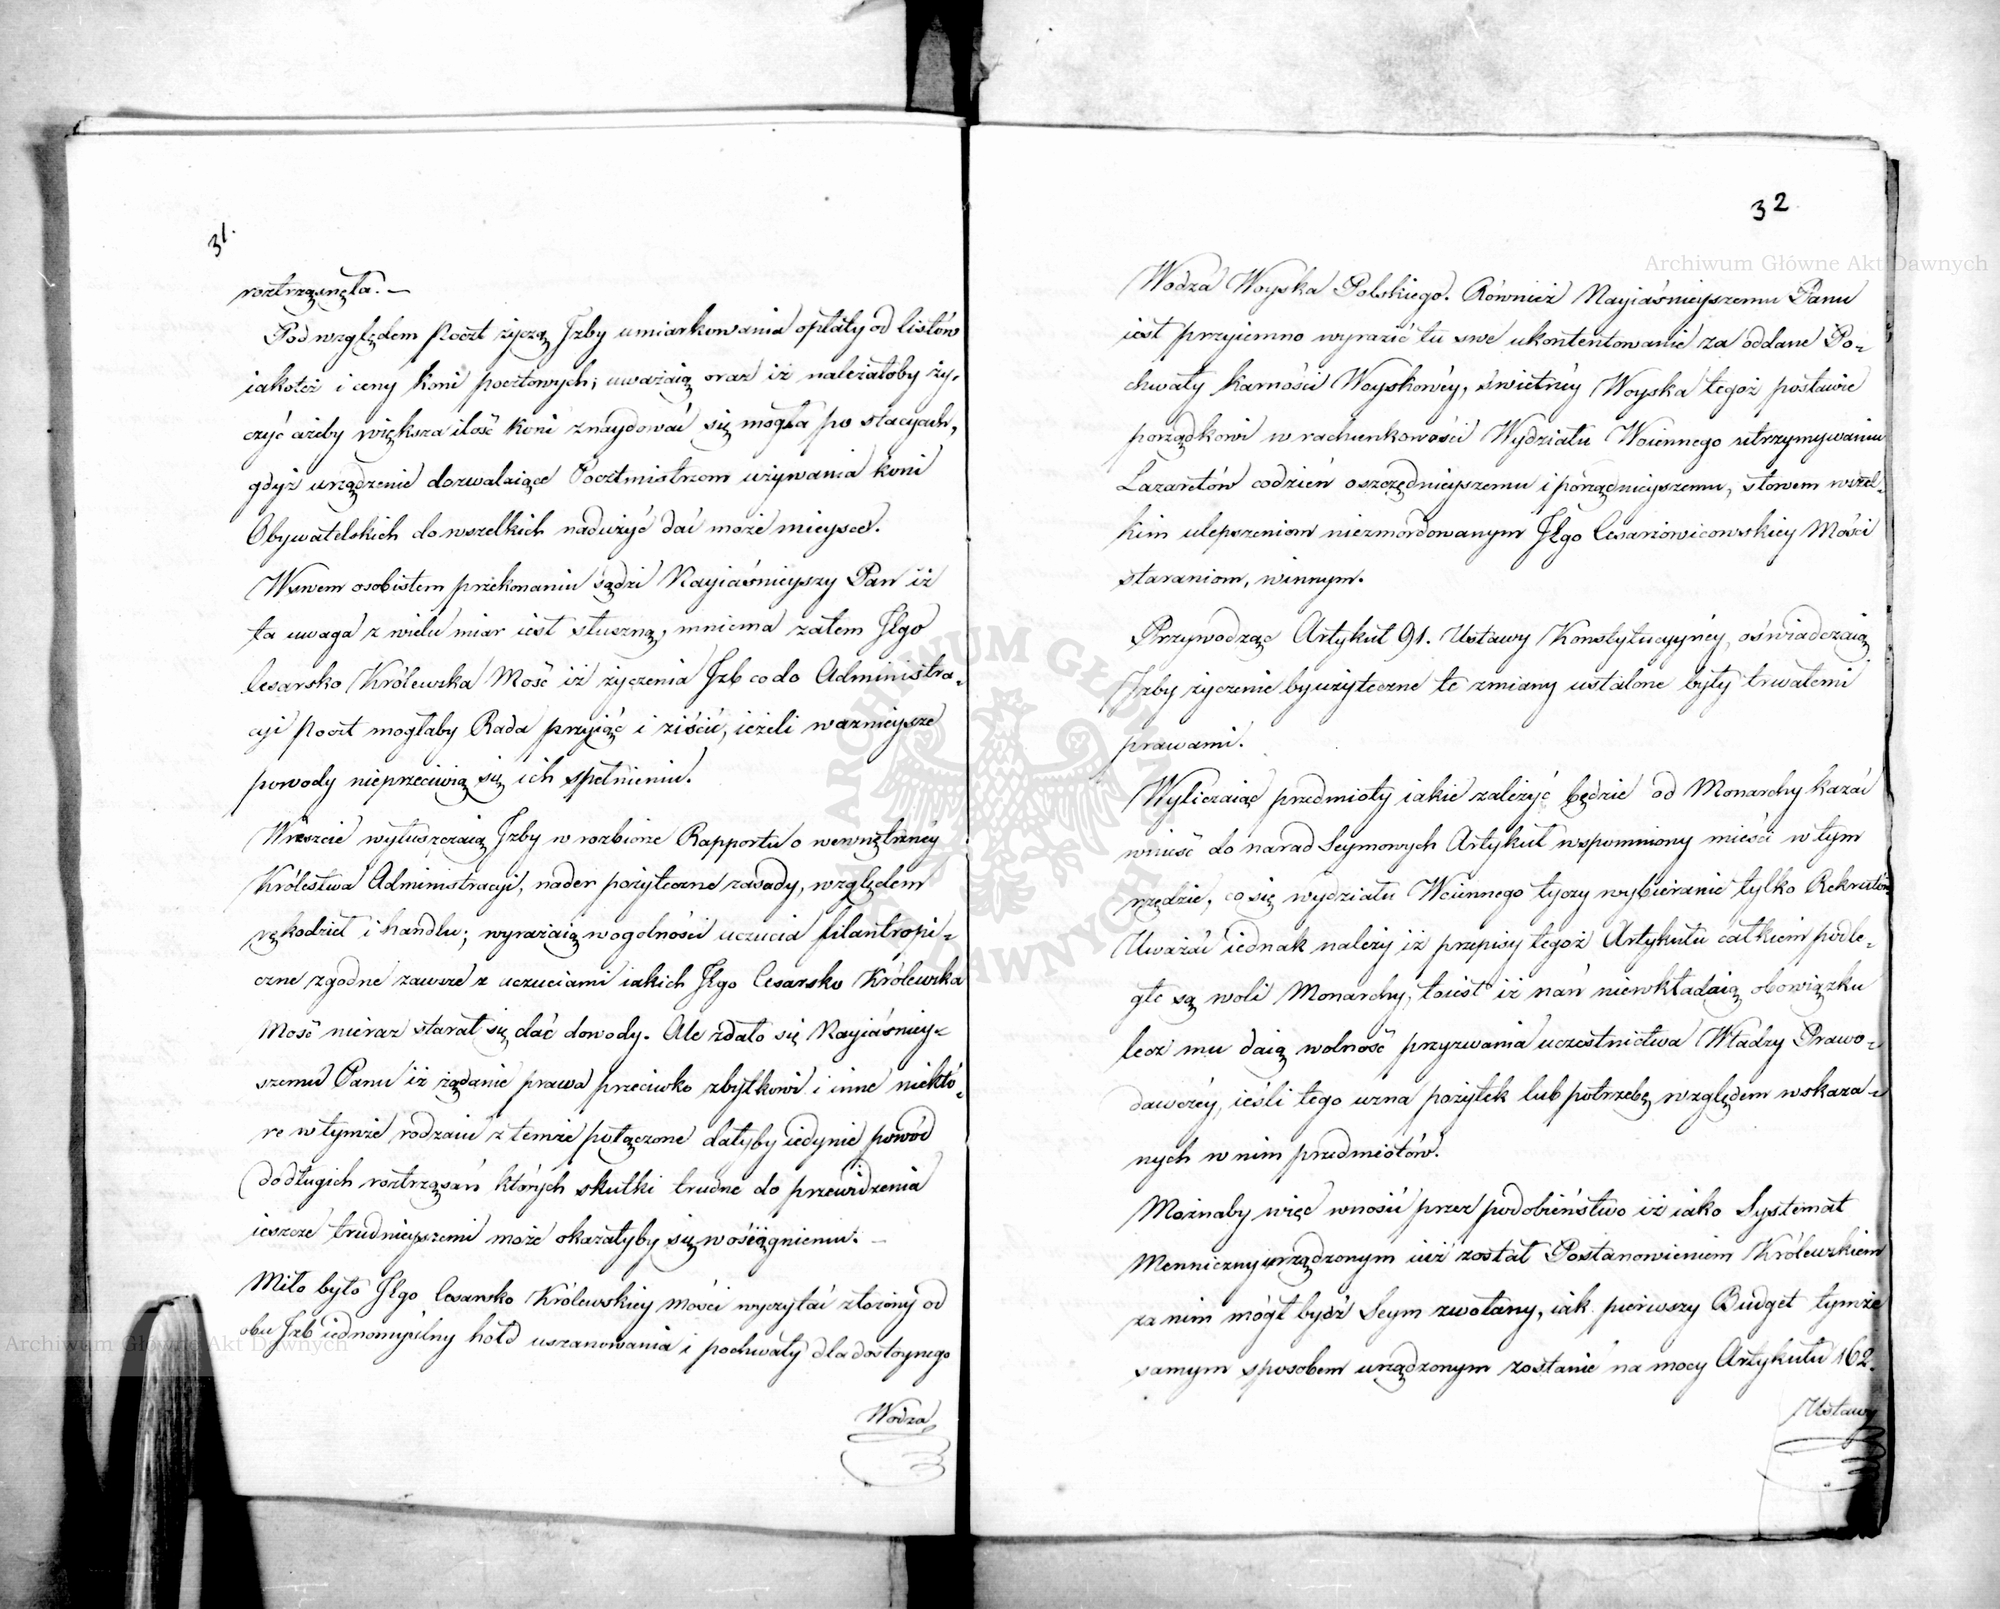 31.
roztrząsnęła. —
Pod względem Poczt życzą Izby umiarkowania opłaty od listów
iakoteż i ceny koni pocztowych; uważaią oraz iż należałoby ży-
czyć ażeby większa ilość koni znaydować się mogła po stacyach,
gdyż urządzenie dozwalaiące Pocztmistrzom używania koni
Obywatelskich do wszelkich nadużyć dać może mieysce.
W swem osobistem przekonaniu sądzi Nayiaśnieyszy Pan iż
ta uwaga z wielu miar iest słuszną, mniema zatem JEgo
Cesarsko Królewska Mość iż życzenia Izb co do Administra-
cyi Poczt mogłaby Rada przyiąć i ziścić, ieżeli ważnieysze
powody nieprzeciwią się ich spełnieniu.
Wreszcie wyłuszczaią Izby w rozbiorze Rapportu o wewnętrznéy
Królestwa Administracyi, nader pożyteczne zasady, względem
rękodzieł i handlu; wyrażaią wogolności uczucia filantropi-
czne zgodne zawsze z uczuciami iakich JEgo Cesarsko Królewska
Mość nieraz starał się dać dowody. Ale zdało się Nayiaśniey-
szemu Panu iż żądanie prawa przeciwko zbytkowi i inne niektó-
re w tymże rodzaiu z temże połączone dałyby iedynie powód
do długich roztrząsań których skutki trudne do przewidzenia
ieszcze trudnieyszemi może okazałyby się w osiągnieniu. —
Miło było JEgo Cesarsko Królewskiey Mości wyczytać złożony od
obu Izb iednomyślny hołd uszanowania i pochwały dla dostoynego
Wodza
32
Wodza Woyska Polskiego. Również Nayiaśnieyszemu Panu
iest przyiemno wyrazić tu swe ukontentowanie za oddane Po-
chwały karności Woyskowéy, świetnéy Woyska tegoż postawie
porządkowi w rachunkowości Wydziału Woiennego utrzymywaniu
Lazaretów codzień oszczędnieyszemu i porządnieyszemu, słowem wszel-
kim ulepszeniom niezmordowanym JEgo Cesarzowicowskiey Mości
staraniom, winnym.
Przywodząc Artykuł 91. Ustawy Konstytucyynéy, oświadczaią
Izby życzenie by użyteczne te zmiany ustalone były trwałemi
prawami.
Wyliczaiąc przedmioty iakie zależyć będzie od Monarchy kazać
wnieść do narad Seymowych Artykuł wspomniony mieści w tym
rzędzie, co się wydziału Woiennego tyczy wybieranie tylko Rekrutów
Uważać iednak należy iż przepisy tegoż Artykułu całkiem podle-
głe są woli Monarchy, toiest iż nań niewkładaią obowiązku
lecz mu daią wolność przyzwania uczestnictwa Władzy Prawo-
dawczéy, ieśli tego uzna pożytek lub potrzebę względem wskaza-
nych w nim przedmiotów.
Możnaby więc wnosić przez podobieństwo iż iako Systemat
Menniczny urządzonym iuż został Postanowieniem Królewskiem
za nim mógł bydź Seym zwołany, iak pierwszy Budget tymże
samym sposobem urządzonym zostanie na mocy Artykułu 162.
Ustawy
Archiwum Główne Akt Dawnych
Archiwum Główne Akt Dawnych
ARCHIWUM GŁÓWNE AKT DAWNYCH